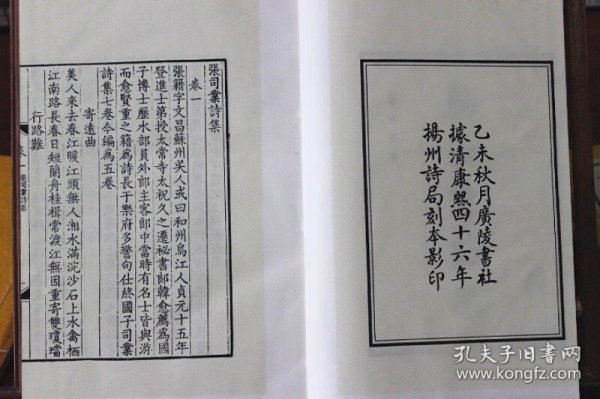 乙未秋月廣陵書社
據清康熙四十六年
揚州詩局刻本影印
張司業詩集
卷一
張籍字文昌蘇州吳人或曰和州烏江人貞元十五年
登進士第授太常寺太祝久之遷祕書郎韓愈薦爲國
子博士歷水部員外郎主客郎中當時有名士皆與游
而愈賢重之籍爲詩長于樂府多警句仕終國子司業
詩集七卷今編爲五卷
寄遠曲
美人來去春江暖江頭無人湘水滿浣沙石上水禽栖
江南路長春日短蘭舟桂楫常渡江無因重寄雙瓊璫
行路難
卷一 張司業詩集
孔夫子旧书网
www.kongfz.com